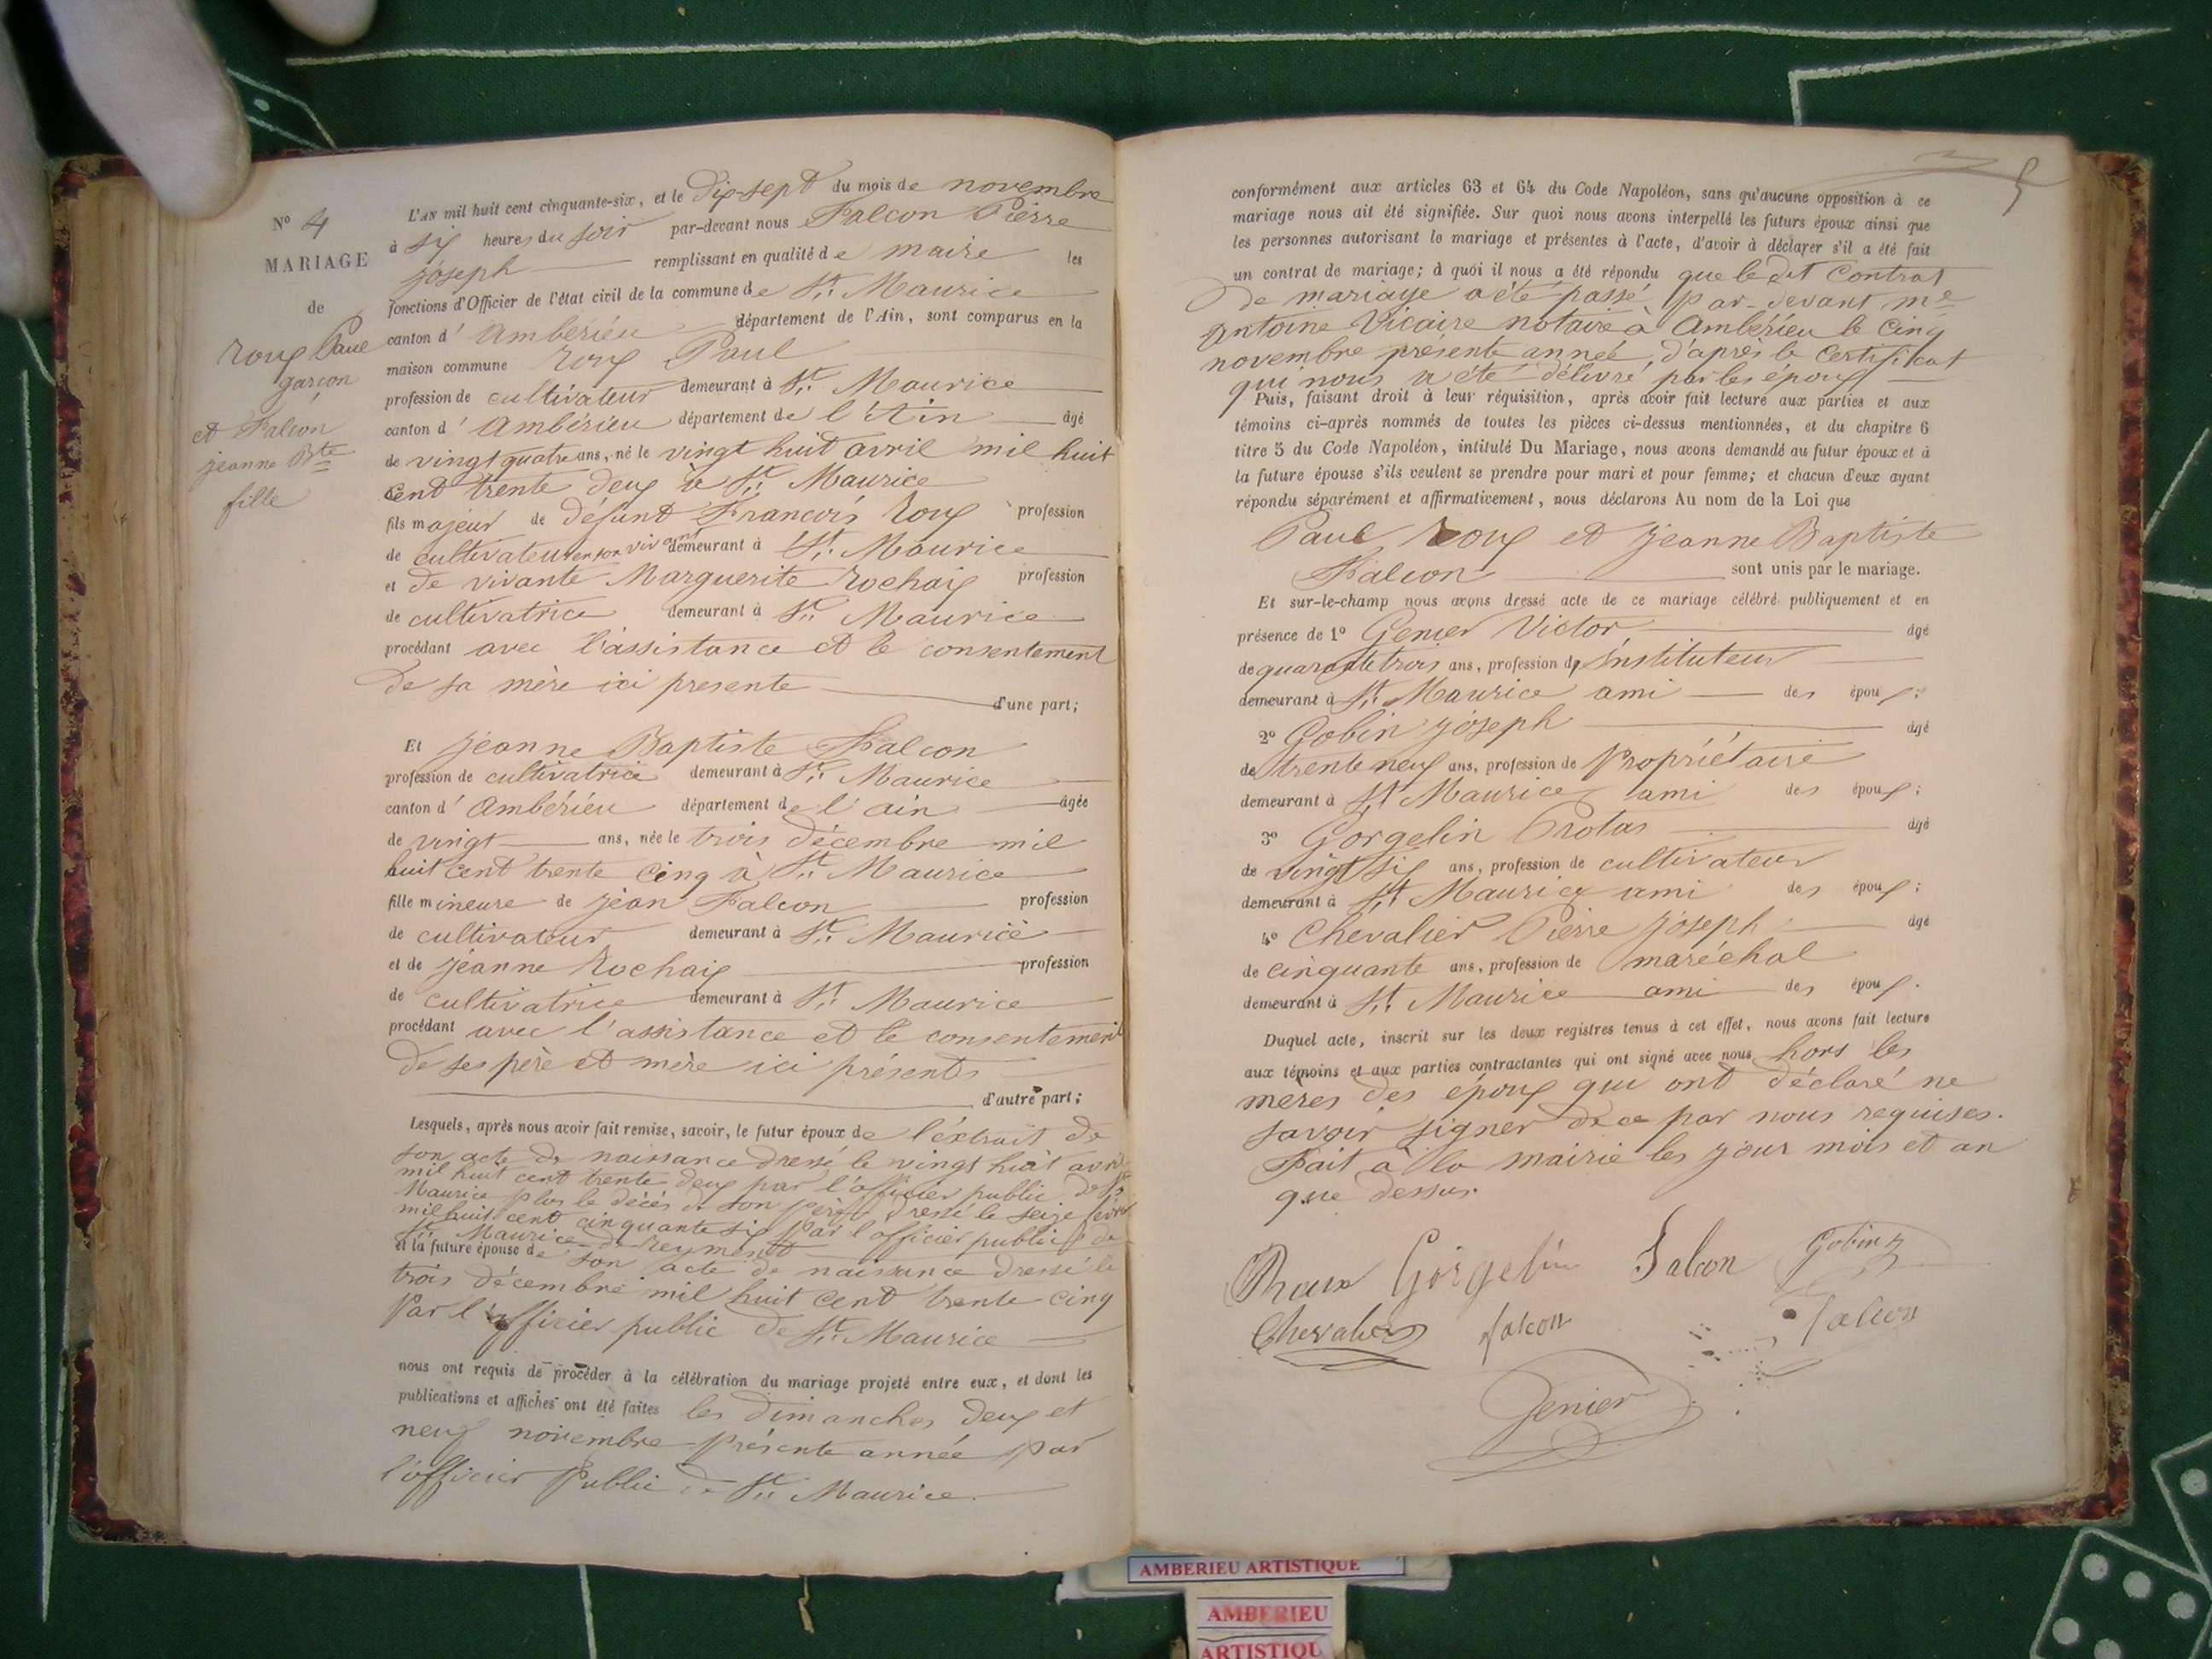 N° 4
MARIAGE
de
roux Paul
garçon
et Falcon
jeanne Bte
fille
L'AN mil huit cent cinquante-six, et le dix-sept du mois de novembre
à six heures du soir par-devant nous Falcon Pierre
joseph remplissant en qualité de maire les
fonctions d'Officier de l'état civil de la commune de St Maurice
canton d'Ambérieu département de l'Ain, sont comparus en la
maison commune roux Paul
profession de cultivateur demeurant à St Maurice
canton d'Ambérieu département de l'Ain âgé
de vingt quatre ans, né le vingt huit avril mil huit
cent trente deux à St Maurice
fils majeur de défunt François roux profession
de cultivateur en son vivant demeurant à St Maurice
et de vivante Marguerite rochaix profession
de cultivatrice demeurant à St Maurice
procédant avec l'assistance et le consentement
de sa mère ici presente
d'une part;
Et jeanne Baptiste Falcon
profession de cultivatrice demeurant à St Maurice
canton d'Ambérieu département de l'ain âgée
de vingt ans, née le trois décembre mil
huit cent trente cinq à St Maurice
fille mineure de jean Falcon profession
de cultivateur demeurant à St Maurice
et de jeanne rochaix profession
de cultivatrice demeurant à St Maurice
procédant avec l'assistance et le consentement
de ses père et mère ici présents
d'autre part;
Lesquels, après nous avoir fait remise, savoir, le futur époux de l'éxtrait de
son acte de naissance dressé le vingt huit avril
mil huit cent trente deux par l'officier public de St
Maurice plus le décès de son père dressé le seize
mil huit cent cinquante six par l'officier public de
St Maurice de reymens
et la future épouse de son acte de naissance dressé le
trois décembre mil huit cent trente cinq
par l'officier public de St Maurice
nous ont requis de procéder à la célébration du mariage projeté entre eux, et dont les
publications et affiches ont été faites les dimanches deux et
neuf novembre présente année par
l'officier Public de St Maurice
5
conformément aux articles 63 et 64 du Code Napoléon, sans qu'aucune opposition à ce
mariage nous ait été signifiée. Sur quoi nous avons interpellé les futurs époux ainsi que
les personnes autorisant le mariage et présentes à l'acte, d'avoir à déclarer s'il a été fait
un contrat de mariage; à quoi il nous a été répondu que le dit Contrat
de mariage a été passé par-devant me
Antoine Vicaire notaire à Ambérieu le cinq
novembre présente année, d'après le Certificat
qui nous a été délivré par les époux
Puis, faisant droit à leur réquisition, après avoir fait lecture aux parties et aux
témoins ci-après nommés de toutes les pièces ci-dessus mentionnées, et du chapitre 6
titre 5 du Code Napoléon, intitulé Du Mariage, nous avons demandé au futur époux et à
la future épouse s'ils veulent se prendre pour mari et pour femme; et chacun d'eux ayant
répondu séparément et affirmativement, nous déclarons Au nom de la Loi que
Paul roux et jeanne Baptiste
Falcon sont unis par le mariage.
Et sur-le-champ nous avons dressé acte de ce mariage célébré publiquement et en
présence de 1° Genier Victor âgé
de quarante trois ans, profession d'instituteur
demeurant à St Maurice ami des époux;
2° Gobin joseph âgé
de trente neuf ans, profession de Propriétaire
demeurant à St Maurice ami des époux;
3° Gorgelin Protas âgé
de vingt six ans, profession de cultivateur
demeurant à St Maurice ami des époux;
4° Chevalier Pierre joseph âgé
de cinquante ans, profession de maréchal
demeurant à St Maurice ami des époux.
Duquel acte, inscrit sur les deux registres tenus à cet effet, nous avons fait lecture
aux témoins et aux parties contractantes qui ont signé avec nous hors les
meres des époux qui ont déclaré ne
savoir signer de ce par nous requises.
Fait à la mairie les jour mois et an
que dessus.
Roux Gorgelin Falcon Gobin
Chevalier falcon falcon
Genier
AMBERIEU ARTISTIQUE
AMBERIEU
ARTISTIQU